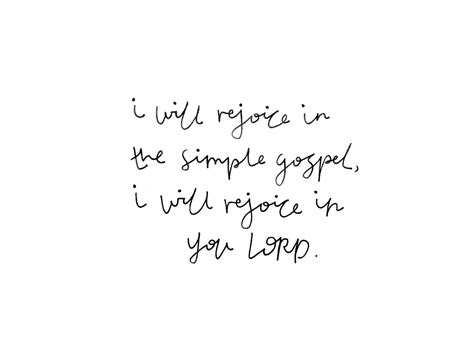 i will rejoice in
the simple gospel,
i will rejoice in
you LORD.